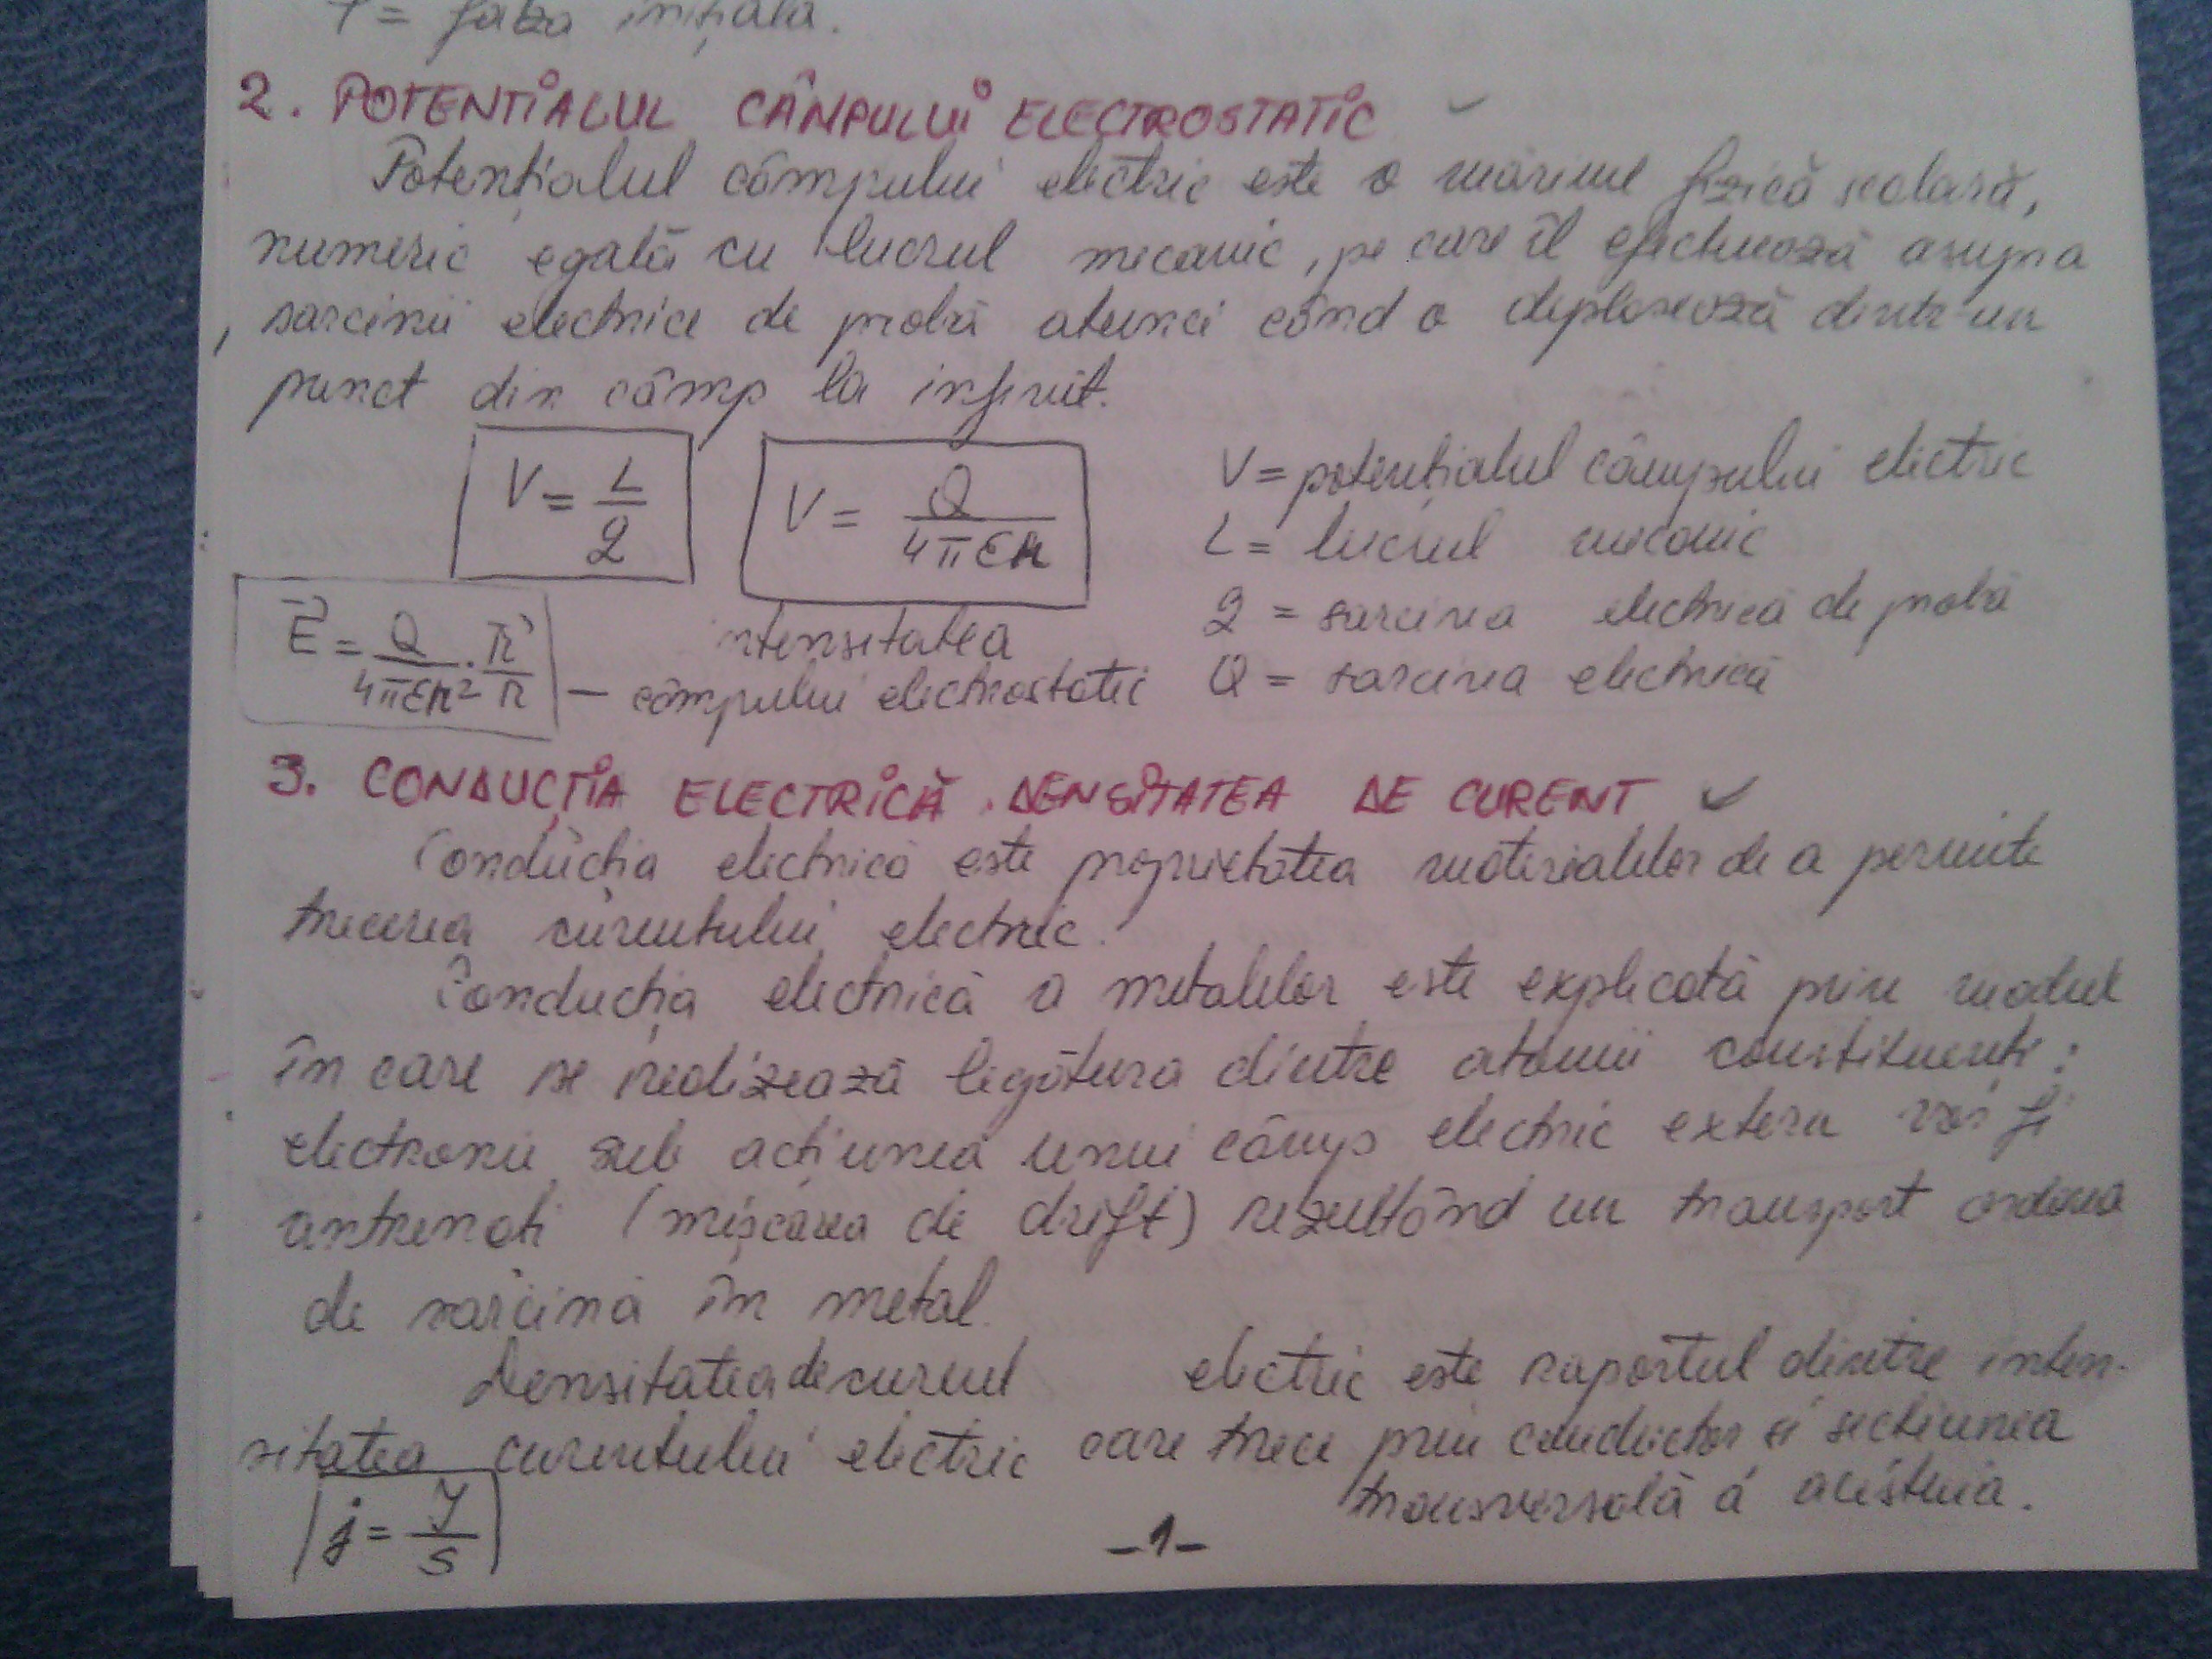 φ = faza inițială.
2. POTENTIALUL CÂNPULUI ELECTROSTATIC
Potențialul câmpului electric este o mărime fizică scalară,
numeric egală cu lucrul mecanic, pe care îl efectuează asupra
sarcinii electrice de probă atunci când o deplasează dintr-un
punct din câmp la infinit.
V = L/q
V = Q/4πεr
V = potențialul câmpului electric
L = lucrul mecanic
q = sarcina electrică de probă
Q = sarcina electrică
E⃗ = Q/4πεr² · r⃗/r — intensitatea
câmpului electrostatic
3. CONDUCȚIA ELECTRICĂ. DENSITATEA DE CURENT
Conducția electrică este proprietatea materialelor de a permite
trecerea curentului electric.
Conducția electrică a metalelor este explicată prin modul
în care se realizează legătura dintre atomii constituenți:
electronii sub acțiunea unui câmp electric extern vor fi
antrenați (mișcarea de drift) rezultând un transport ordona
de sarcină în metal.
Densitatea de curent electric este raportul dintre inten-
sitatea curentului electric care trece prin conductor și secțiunea
transversală a acestuia.
j = I/S
-1-